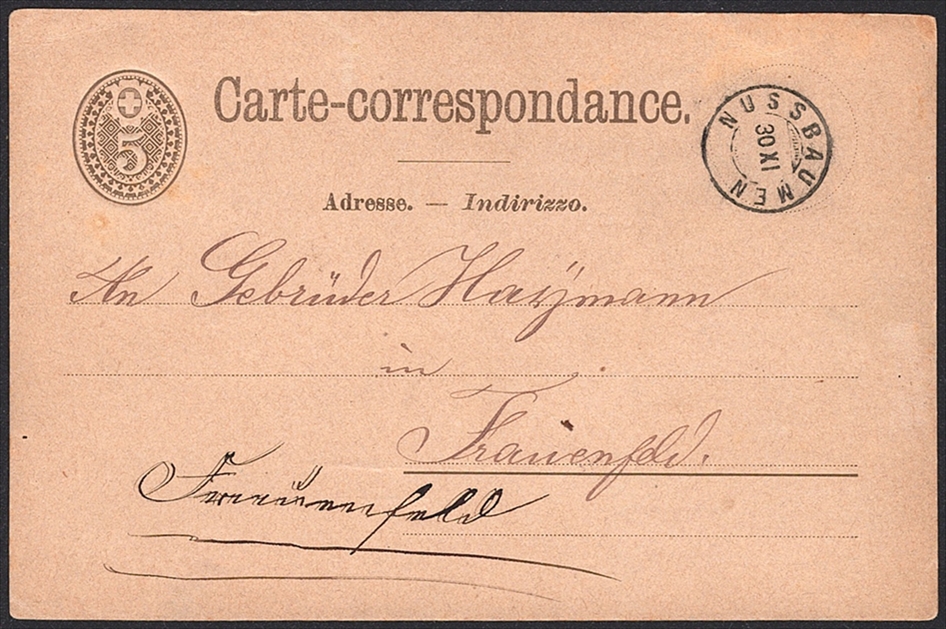 5
Carte-correspondance.
NUSSBAUMEN
30 XI
Adresse. — Indirizzo.
An Gebrüder Haÿmann
in
Frauenfeld.
Frauenfeld